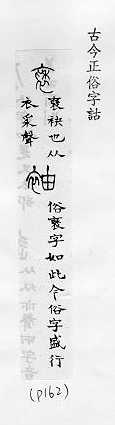 古今正俗字詁
褎
褎袂也从
衣采聲
袖
俗褎字如此今俗字盛行
(P162)